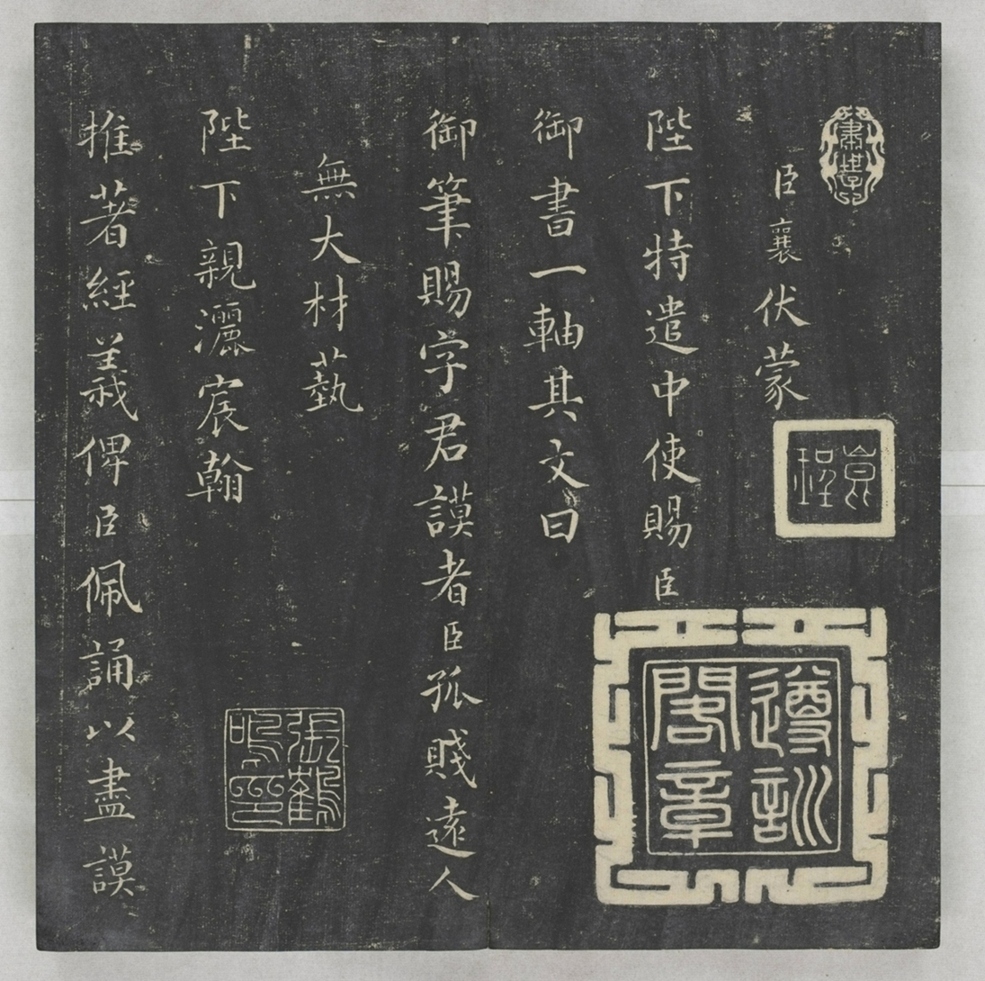 臣襄伏蒙
陛下特遣中使賜臣
御書一軸其文曰
御筆賜字君謨者臣孤賤遠人
無大材藝
陛下親灑宸翰
推著經義俾臣佩誦以盡謨
遵訓閣章